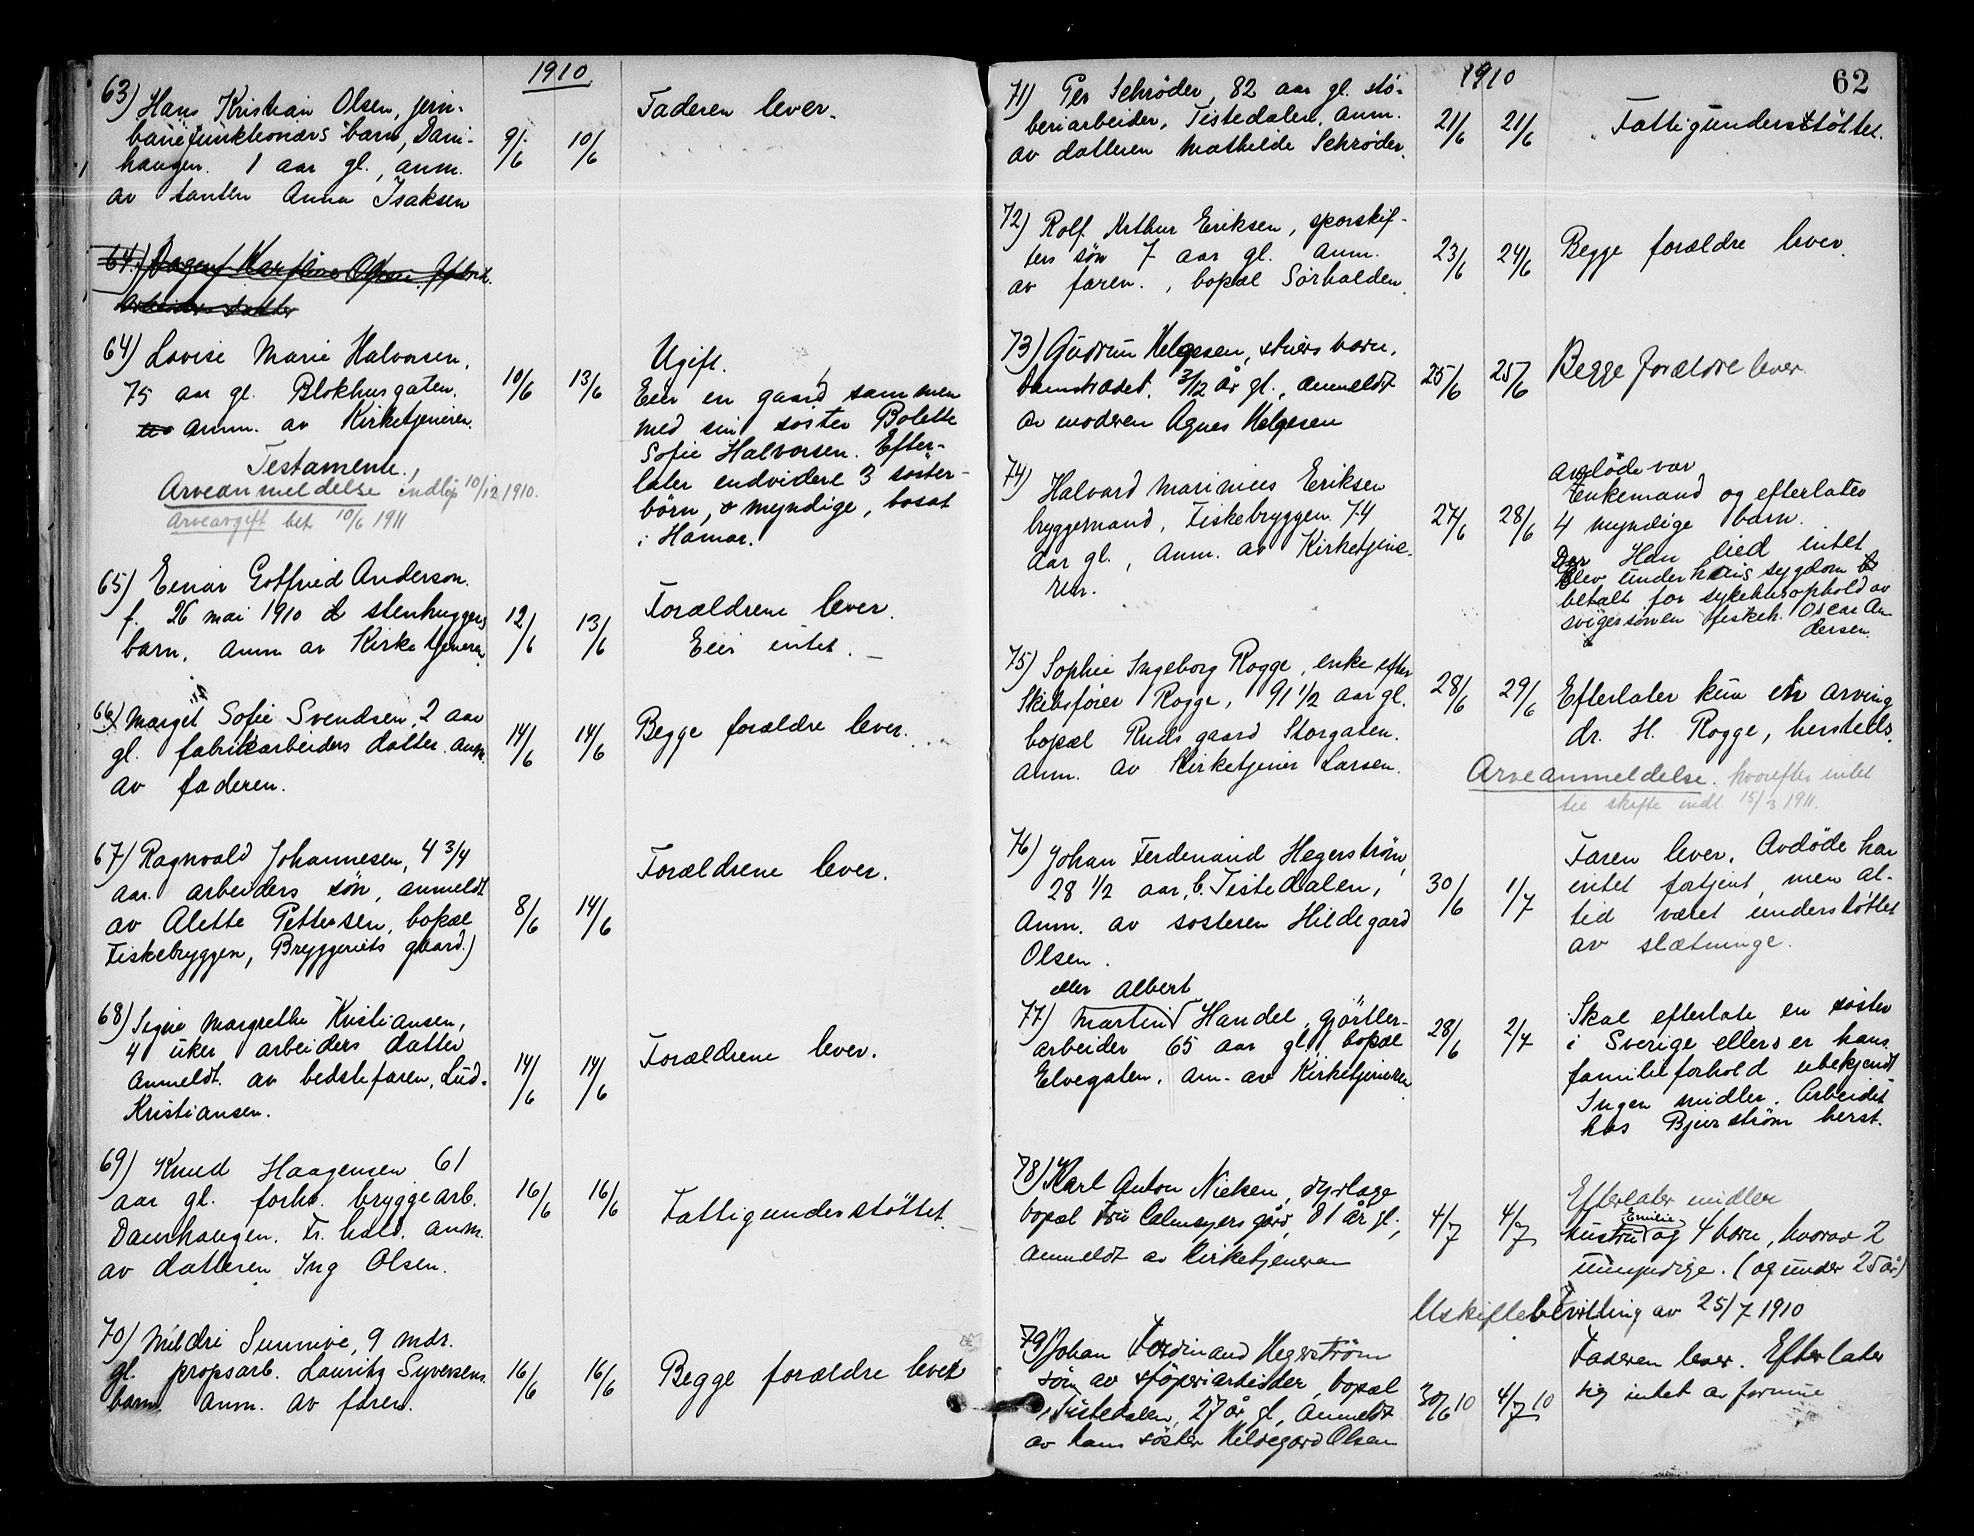 1910
63) Hans Kristian Olsen, jern-
banefunktionærs barn, Dam-
haugen. 1 aar gl., anm.
av tanten Anna Isaksen
9/6 10/6
Faderen lever.
64)
Arbeiders datter
64) Lovise Marie Halvorsen,
75 aar gl. Blokhusgaten.
anm. av Kirketjeneren.
Testamente.
Arveanmeldelse indløp 10/12 1910.
Arveavgift bet 10/6 1911
10/6 13/6
Ugift.
Eier en gaard sammen
med sin søster Bolette
Sofie Halvorsen. Efter-
later endvidere 3 søster-
børn, myndige, bosat
i Hamar.
65) Einar Gotfried Anderson.
f. 26 mai 1910 stenhuggers
barn, anm av Kirketjeneren
12/6 13/6
Forældrene lever.
Eier intet.
66) Margit Sofie Svendsen, 2 aar
gl. fabrikarbeiders datter. anm.
av faderen.
14/6 14/6
Begge forældre lever.
67) Ragnvald Johannesen, 4 3/4
aar. arbeiders søn, anmeldt
av Alette Pettersen, bopæl
Fiskebryggen, Bryggeriets gaard.)
8/6 14/6
Forældrene lever.
68) Signe Margrethe Kristiansen,
4 uker arbeiders datter
Anmeldt av bedstefaren, Lud.
Kristiansen.
14/6 14/6
Forældrene lever.
69) Knud Haagensen 61
aar gl. forhv. bryggearb.
Damhaugen. Fr.hald. anm.
av datteren Ing Olsen.
16/6 16/6
Fattigunderstøttet.
70) Mildri Sunnive, 9 mdr.
gl. propsarb. Lauritz Syversens
barn. Anm. av faren.
16/6 16/6
Begge forældre lever
62
1910
71) Per Schrøder, 82 aar gl. stø-
beriarbeider, Tistedalen, anm.
av datteren Mathilde Schrøder.
21/6 21/6
Fattigunderstøttet.
72) Rolf Arthur Eriksen, sporskif-
ters søn 7 aar gl. Anm.
av faren., bopæl Sørhalden.
23/6 24/6
Begge forældre lever.
73) Gudrun Helgesen, skuers barn,
Damstrædet, 3/12 år gl., anmeldt
av moderen Agnes Helgesen
25/6 25/6
Begge forældre lever
74) Halvard Marinius Eriksen
bryggemand, Fiskebryggen 74
aar gl., anm. av Kirketjene-
ren.
27/6 28/6
avdøde var
Enkemand og efterlater
4 myndige barn.
Han eied intet
Der blev under hans sygdom
betalt for sykehusophold av
svigersønnen fiskeh. Oscar An
dersen.
75) Sophie Ingeborg Rogge, enke efter
Skibsfører Rogge, 91 1/2 aar gl.
bopæl Ruds gaard Storgaten.
anm. av Kirketjener Larsen.
28/6 29/6
Efterlater kun en arving
dr. H. Rogge, hersteds.
Arveanmeldelse. hvorefter intet
til skifte indl. 15/3 1911.
76) Johan Ferdinand Hegerstrøm,
28 1/2 aar, b. Tistedalen,
Anm. av søsteren Hildegard
Olsen.
30/6 1/7
Faren lever. Avdøde har
intet fortjent, men al-
tid været understøttet
av slægtninge.
eller Albert
77) Martin Handel, gjørtler-
arbeider 65 aar gl., bopæl
Elvegaten. Am. av Kirketjeneren
28/6 2/7
Skal efterlate en søster
i Sverige ellers er hans
familieforhold ubekjendt
Ingen midler. Arbeidet
hos Bjerstrøm herst.
78) Karl Anton Nielsen, dyrlæge
bopæl Fru Calmeyers gård, 81 år gl.,
anmeldt av Kirketjeneren
4/7 4/7
Efterlater midler
hustru Emilie og 4 børn, hvorav 2
umyndige. (og under 25 år)
Uskiftebevilling av 25/7 1910
79) Johan Ferdinand Hegerstrøm
søn av støperiarbeider, bopæl
i Tistedalen, 27 år gl, Anmeldt
av hans søster Hildegard Olsen
30/6 10 4/7 10
Faderen lever. Efterlater
sig intet av formue